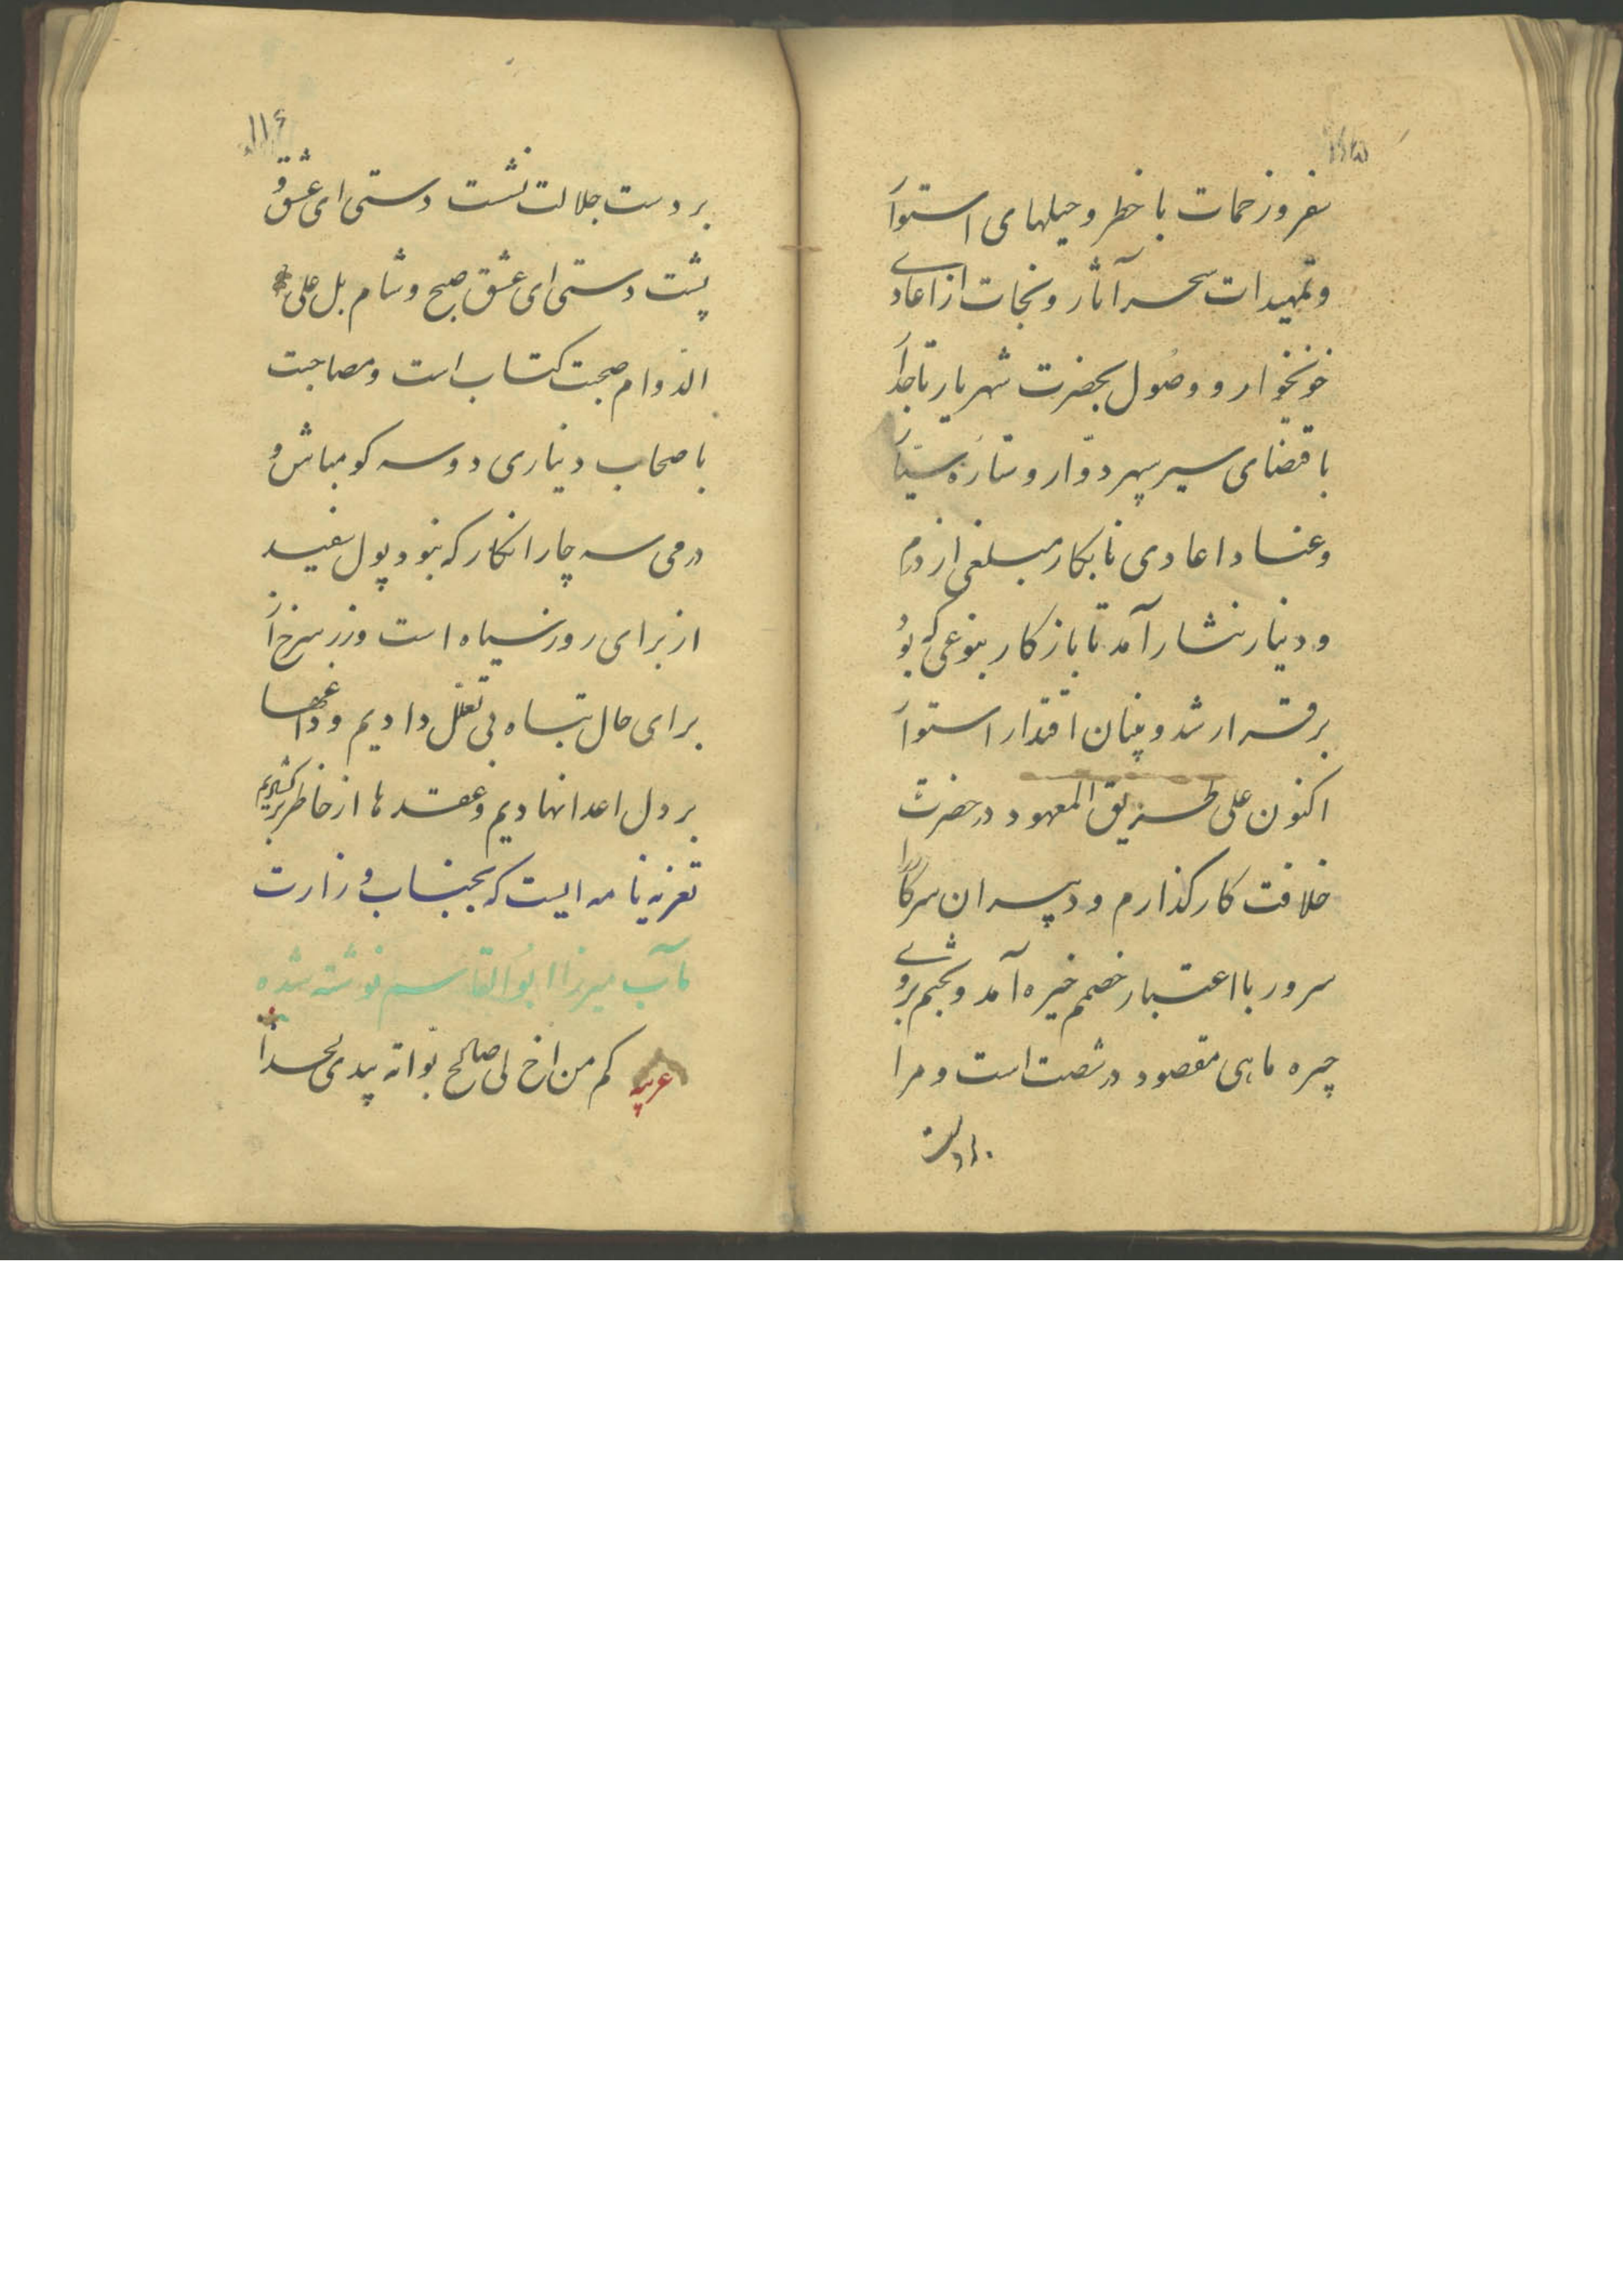 ۱۱۵
سفر و زحمات با خطر و حیلهای استوار
و تمهیدات سحر آثار و نجات از اعادی
خونخوار و وصول بحضرت شهریار تاجدار
باقتضای سیر سپهر دوّار و ستارَه سیّار
و عناد اعادی نابکار مبلغی از درم
و دینار نثار آمد تا باز کار بنوعی که بود
برقرار شد و بنیان اقتدار استوار
اکنون علی طریق المعهود در حضرت
خلافت کارگذارم و دبیران سرکار را
سرور با اعتبار خصم خیره آمد و نجم بروشی
چیره ماهی مقصود در شصت است و مرا
بر دست
۱۱۶
بر دست جلالت نشست دستی ای عشق و
پشت دستی ای عشق صبح و شام بل علی
الدوام صحبت کتاب است و مصاحبت
با صحاب دیناری دو سه کو مباش و
درمی سه چار انکار که نبود پول سفید
از برای روز سیاه است و زر سرخ از
برای حال تباه بی تعلل دادیم و داغها
بر دل اعدا نهادیم و عقدها از خاطر برکشادیم
تعزیه نامه ایست که بجناب وزارت
مآب میرزا ابوالقاسم نوشته شده
عربیه کم من اخ لی صالح بوأته بیدی لحدا